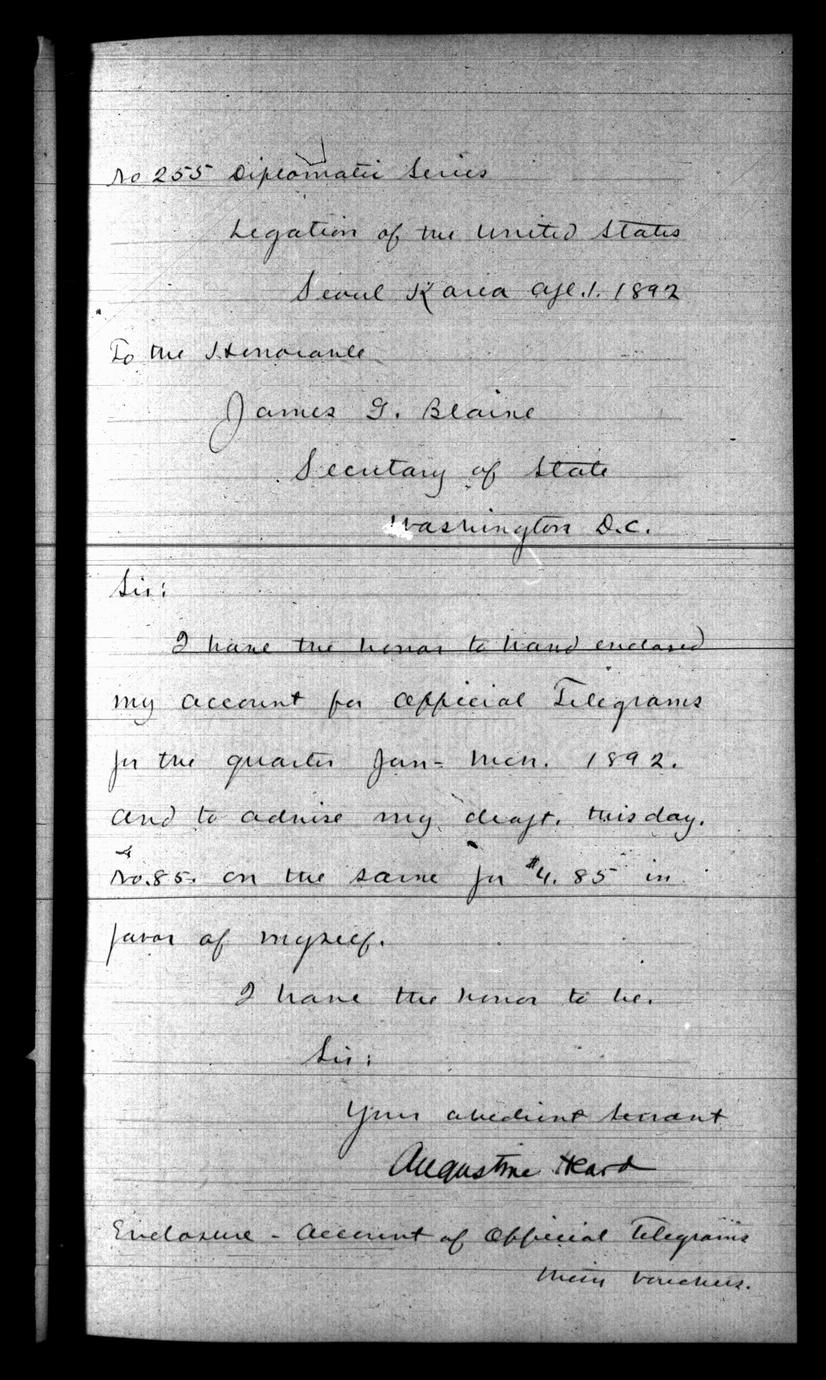 No 255 Diplomatic Series
Legation of the United States
Seoul Korea Apl. 1. 1892
To the Honorable
James G. Blaine
Secretary of State
Washington D.C.
Sir:
I have the honor to hand enclosed
my account for Official Telegrams
for the quarter Jan- Mch. 1892.
and to advise my draft. this day.
No. 85. on the same for $4.85 in
favor of myself.
I have the honor to be.
Sir:
Your obedient servant
Augustine Heard
Enclosure - Account of Official Telegrams
vouchers.